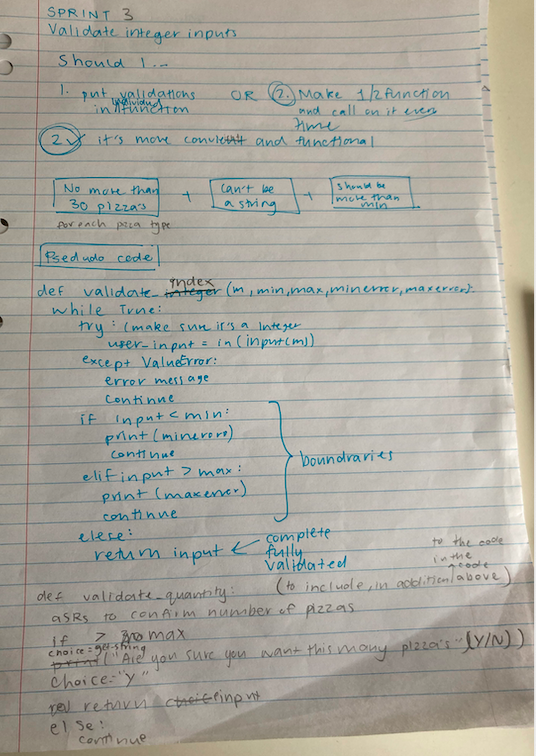 SPRINT 3
Validate integer inputs
Should I ...
1. put validations OR 2. Make 1/2 function
in individual function and call on it every
time
2 ✓ it's more convient and functional
No more than + Can't be + should be
30 pizza's a string more than
min
for each pizza type
Psedudo code
def validate_index (m, min, max, minerror, maxerror):
while True:
try: (make sure it's a Integer
user_input = in (input(m))
except ValueError:
error message
continue
if input < min:
print (minerore)
continue
elif input > max:
print (maxerror)
continue
boundraries
elese:
return input ← complete
fully
validated
def validate_quantity: (to include, in addition to the code
in the code above)
asks to confirm number of pizzas
if > max
choice = get-string
("Are you sure you want this many pizza's" (Y/N))
choice = "Y"
return input
else:
continue